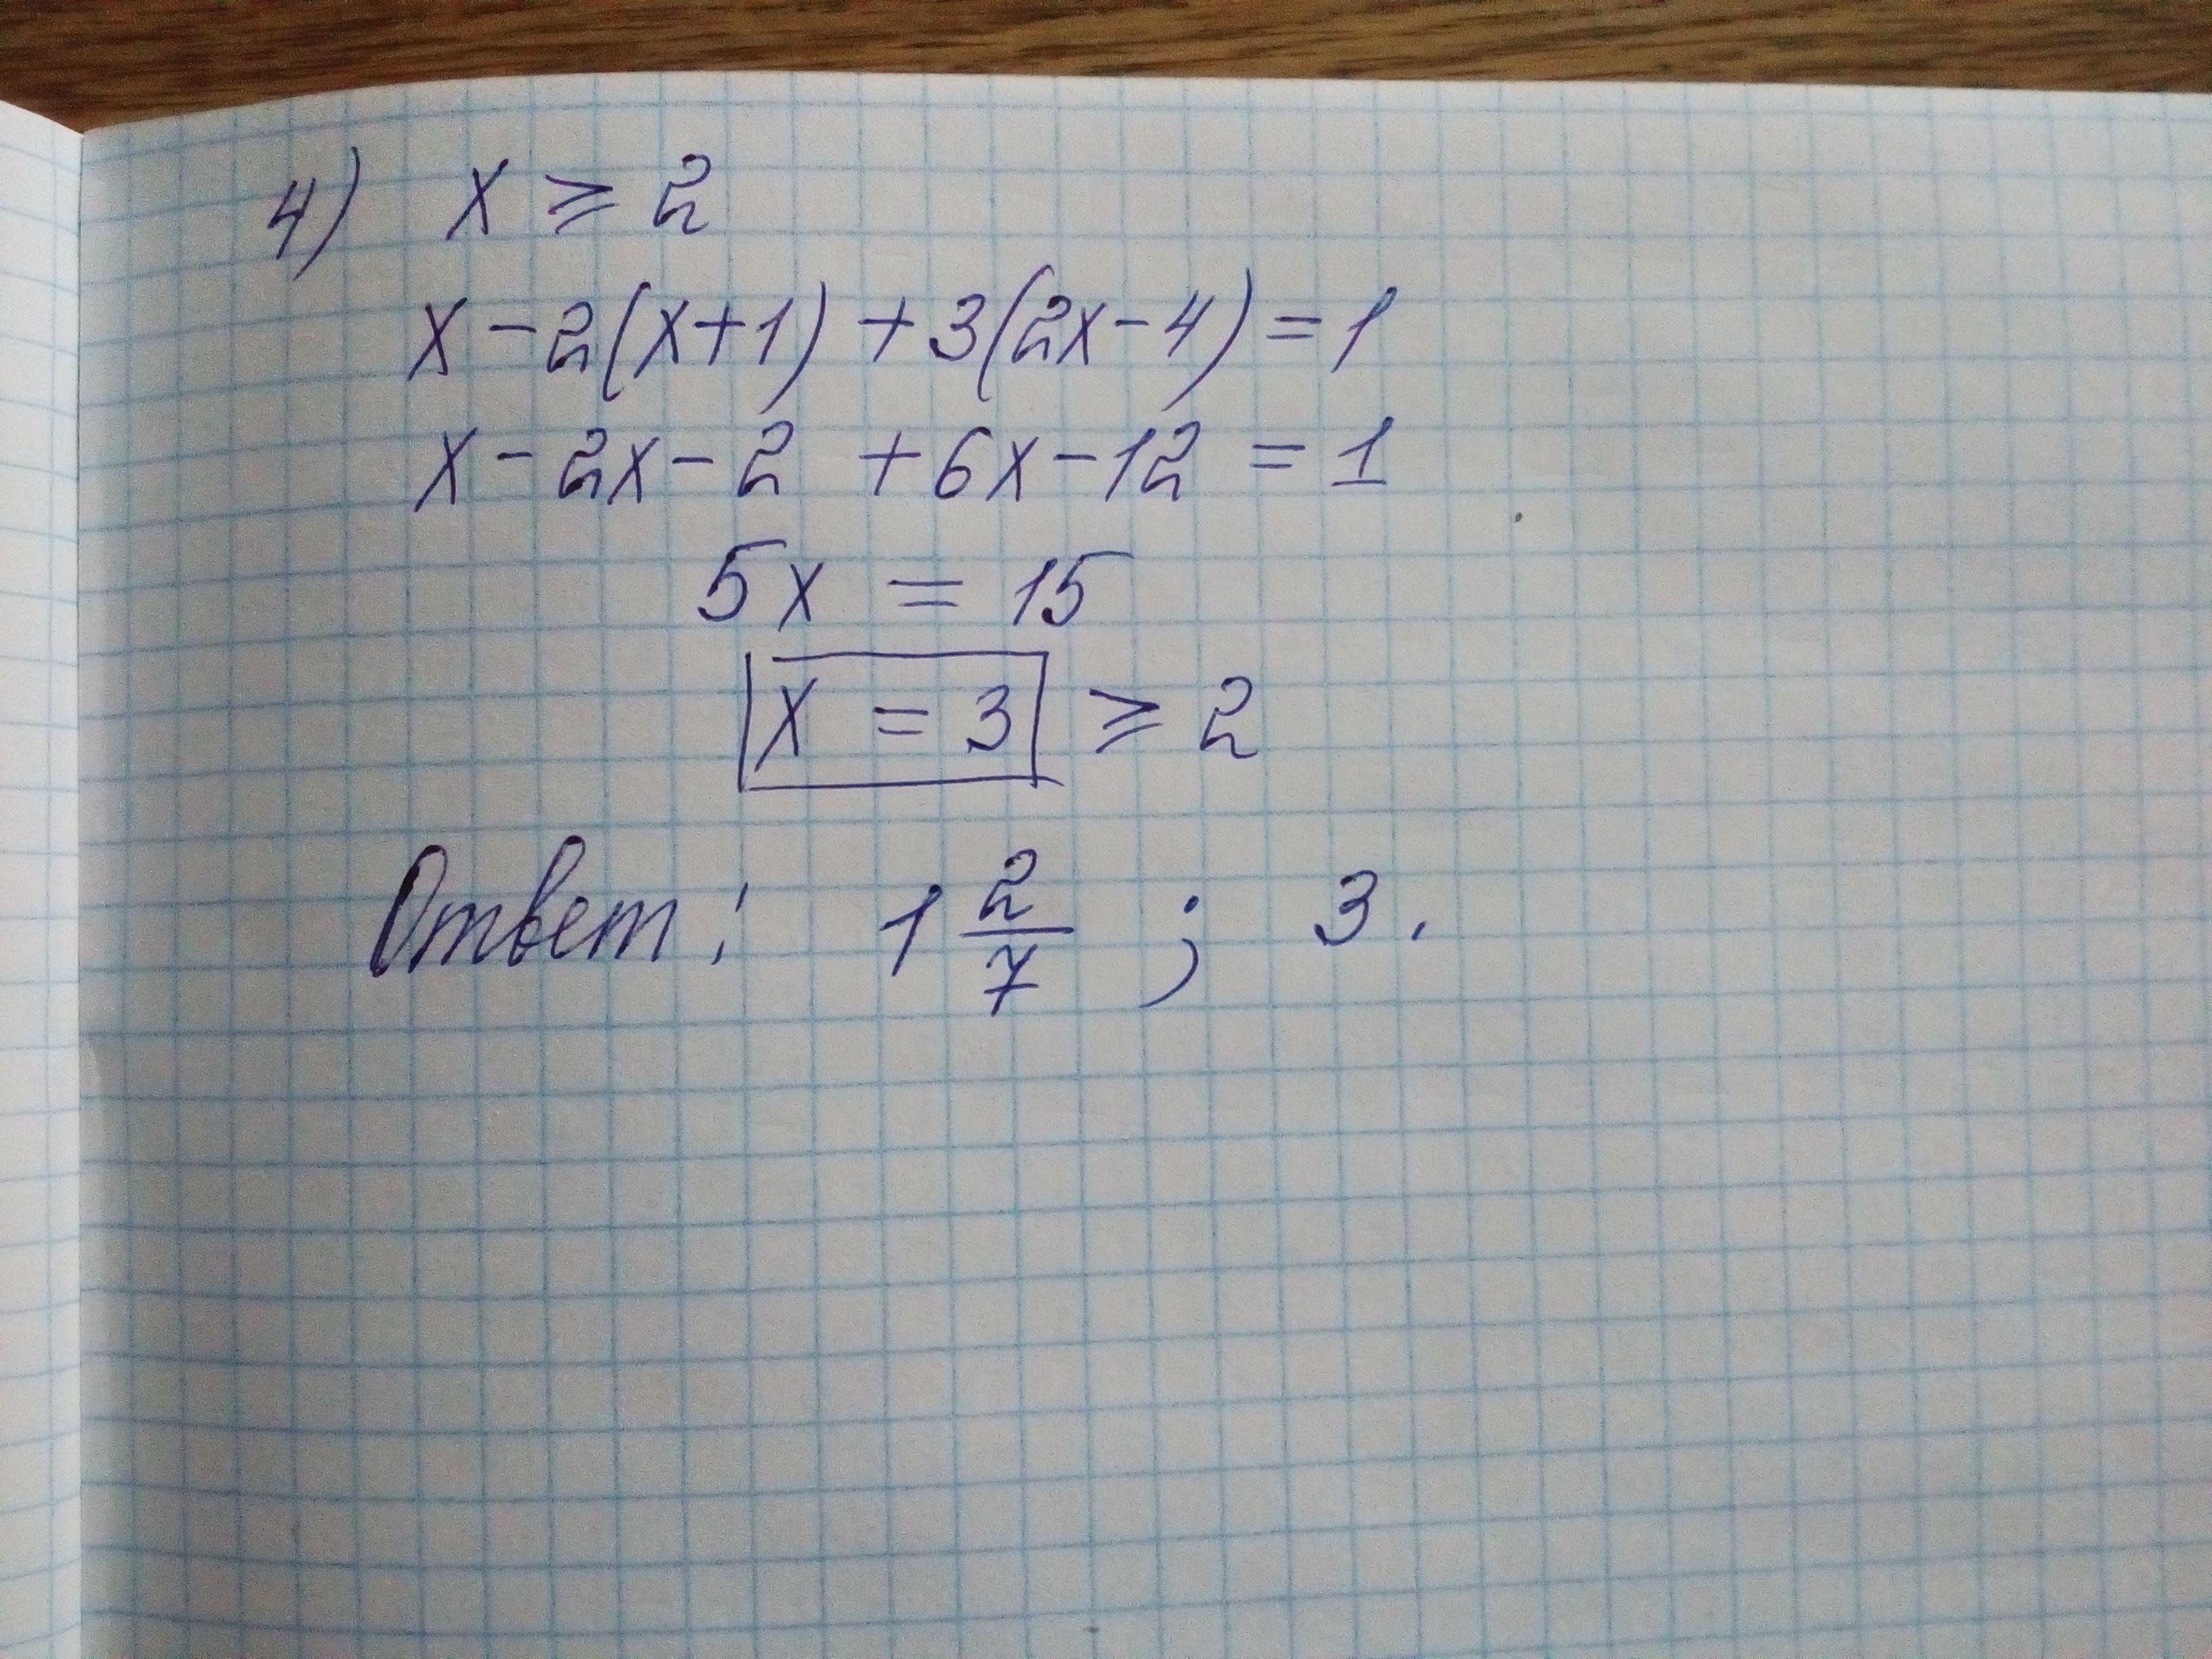 4) x ≥ 2
x - 2(x+1) + 3(2x-4) = 1
x - 2x - 2 + 6x - 12 = 1
5x = 15
x = 3 ≥ 2
Ответ: 1 2/7 ; 3.